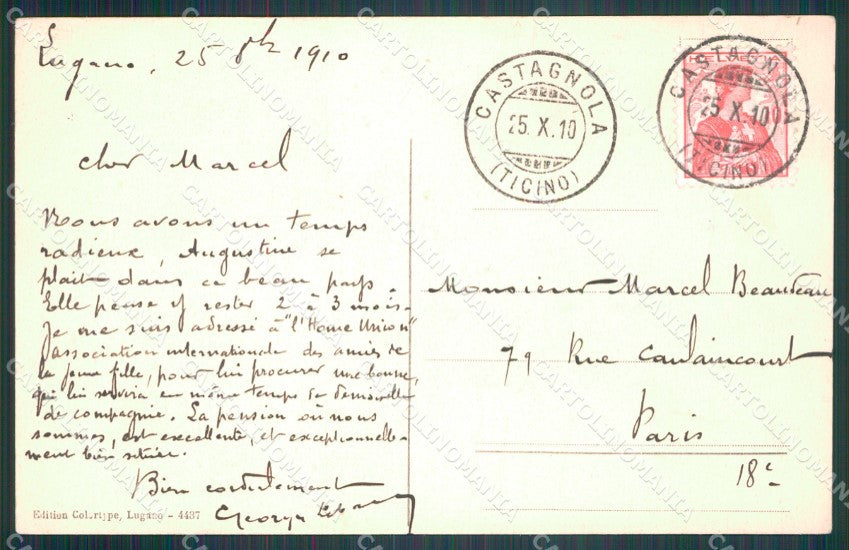 Lugano, 25 8bre 1910
Cher Marcel
Nous avons un temps
radieux, Augustine se
plait dans ce beau pays.
Elle pense y rester 2 à 3 mois.
Je me suis adressé à "l'Home Union"
association internationale des amies de
la jeune fille, pour lui procurer une bonne,
qui lui servira en même temps de demoiselle
de compagnie. La pension où nous
sommes, est excellente, et exceptionnelle-
ment bien située.
Bien cordialement
Georges
Edition Colortype, Lugano - 4437
CASTAGNOLA
25.X.10
(TICINO)
CASTAGNOLA
25.X.10
(TICINO)
Monsieur Marcel Beaudeau
79 Rue Caulaincourt
Paris
18e
CARTOLINOMANIA